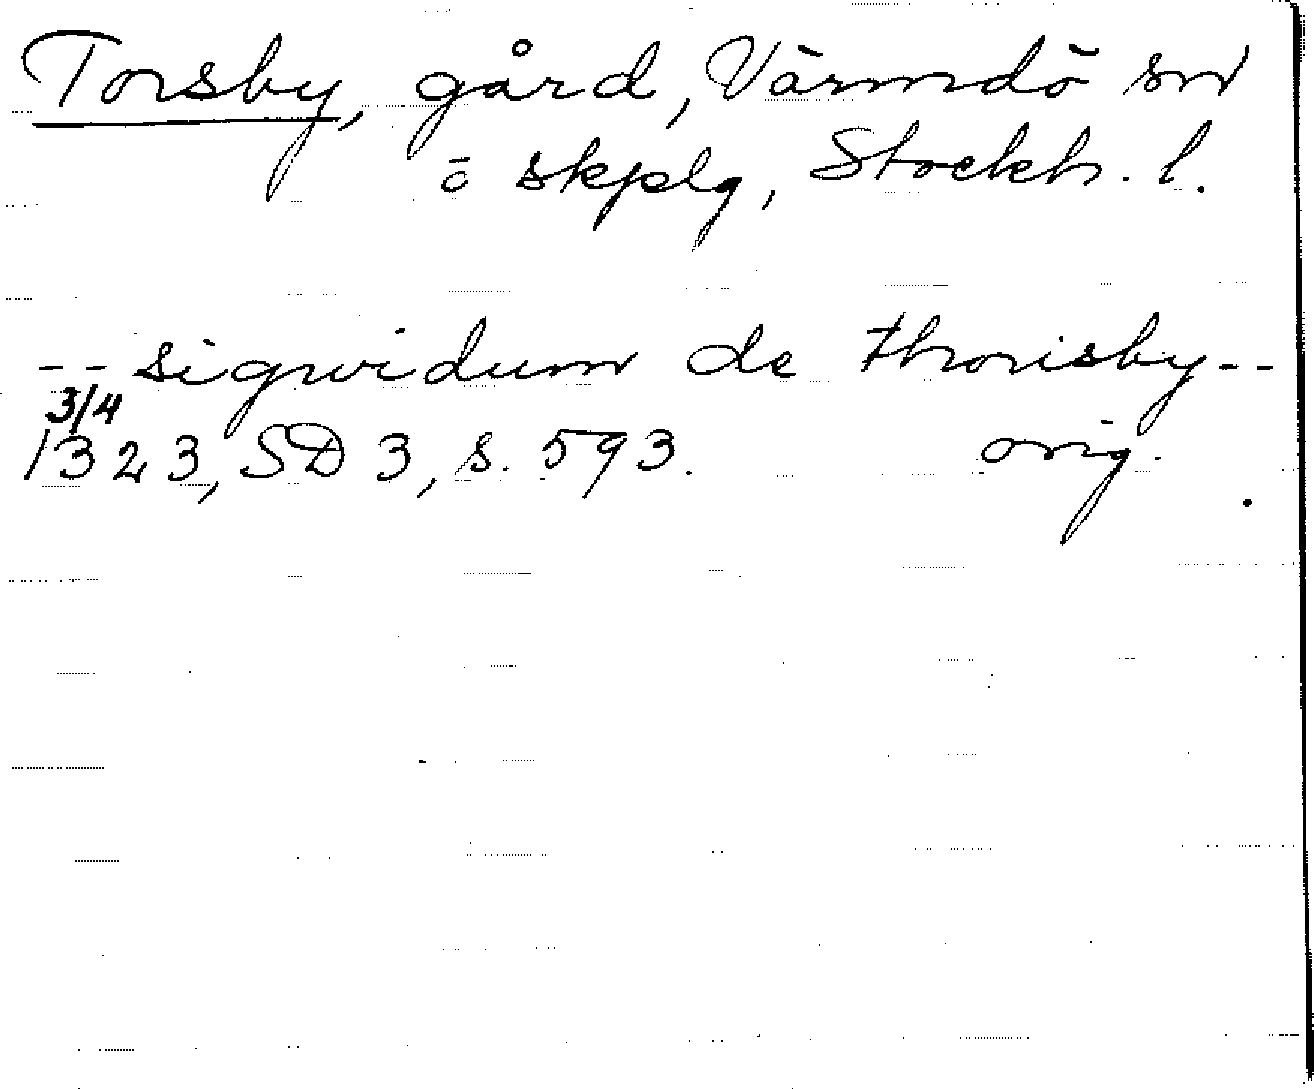 Torsby, gård, Värmdö sn
ö skplg, Stockh. l.
-- sigwidum de thorisby --
3/4
1323, SD 3, s. 593. orig.